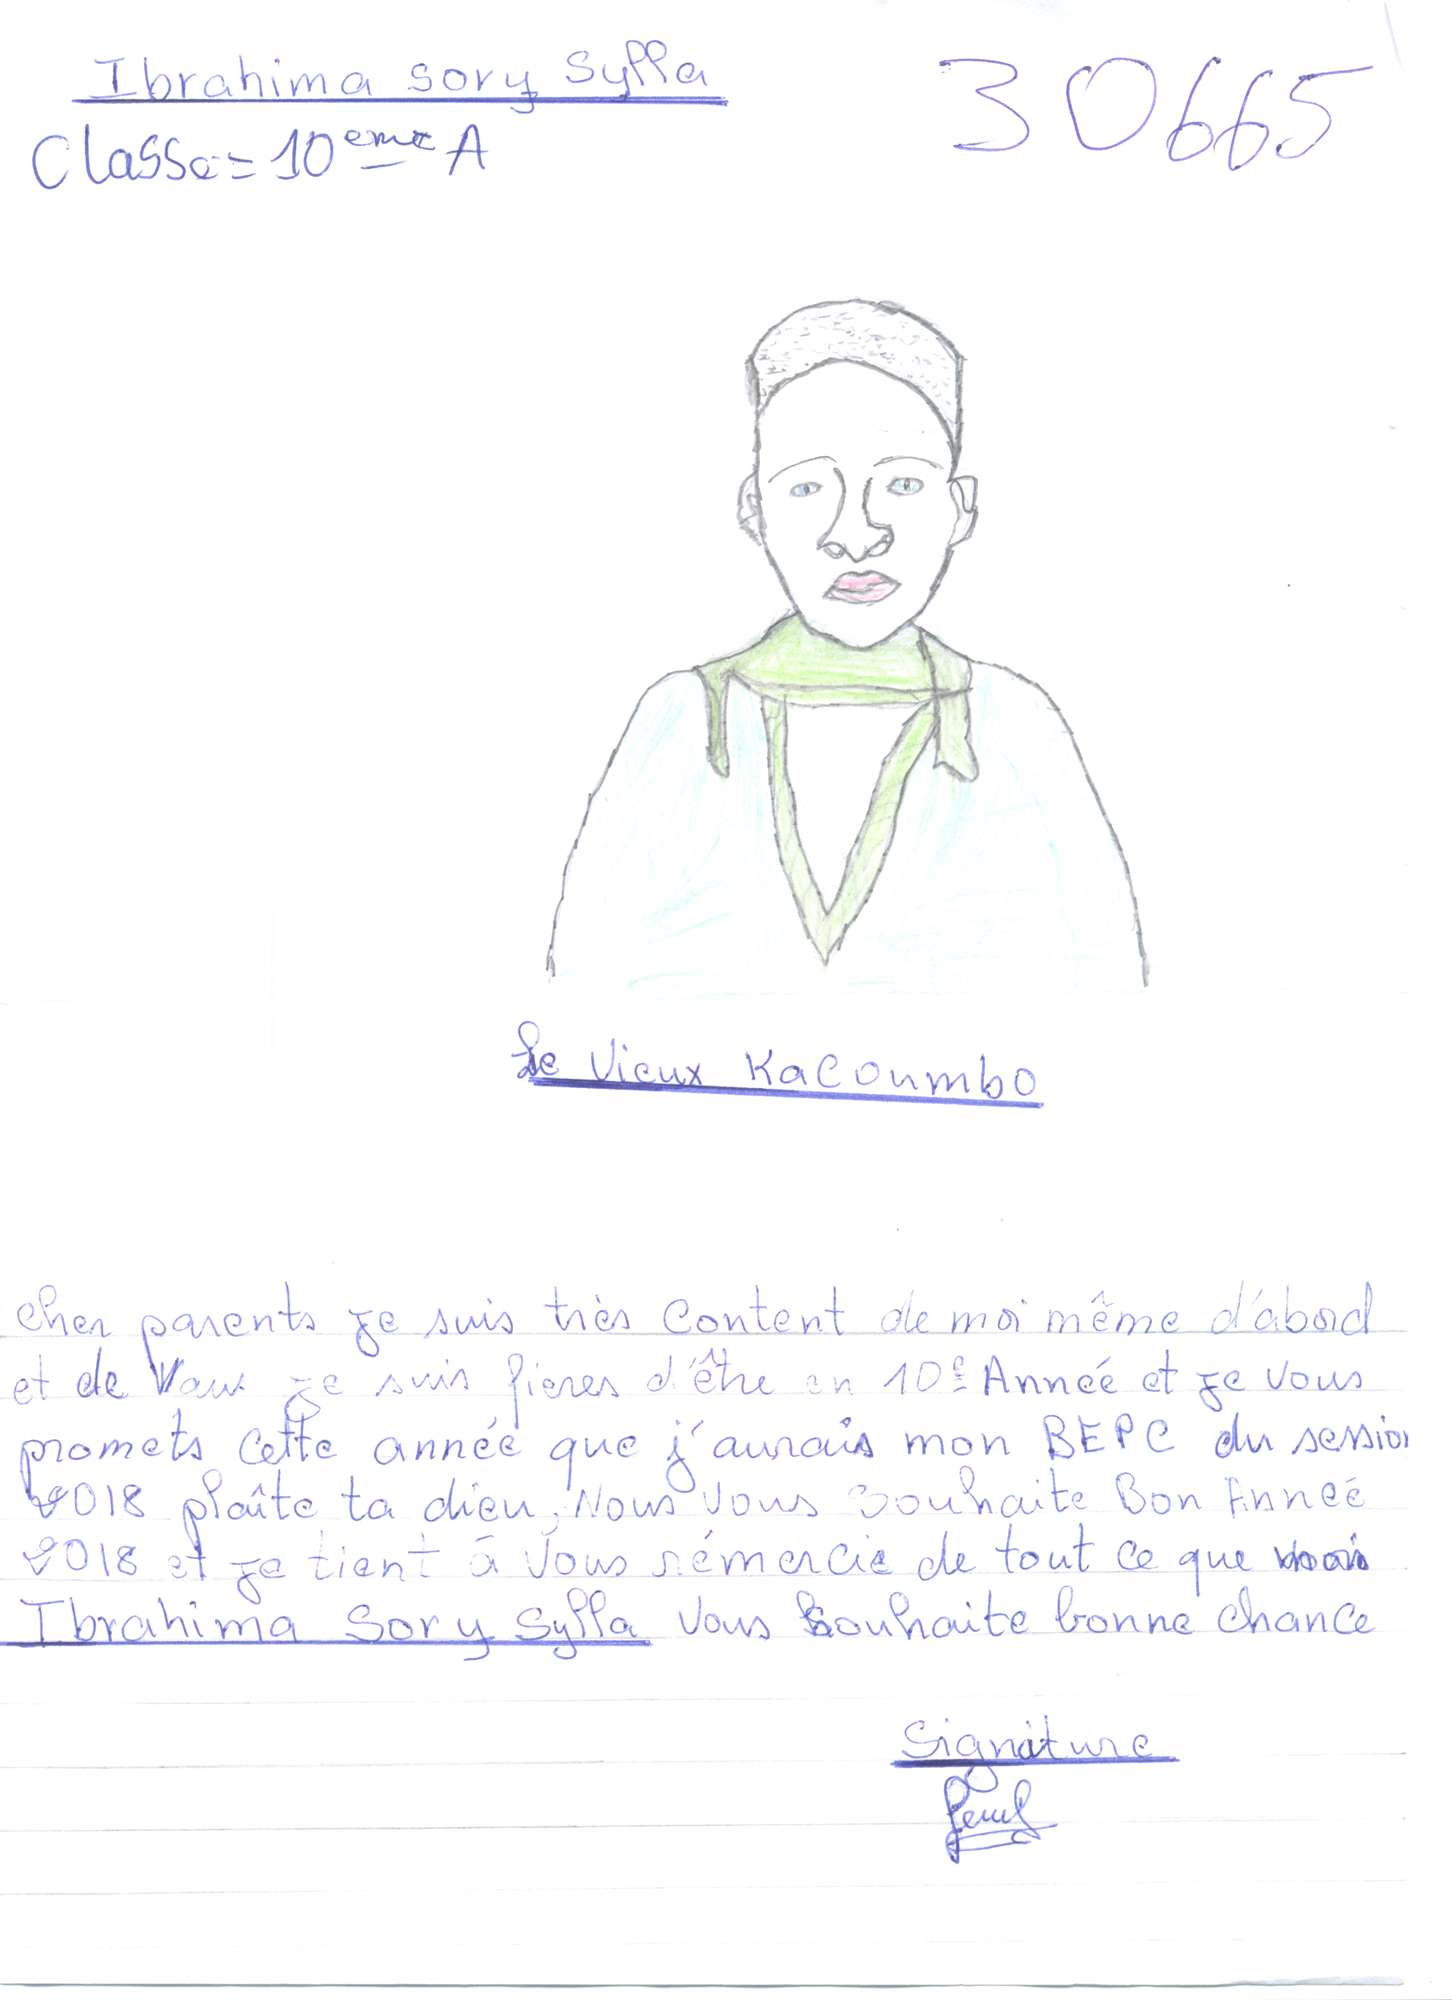 Ibrahima Sory Sylla
30665
Classe = 10eme A
Le Vieux Kacoumbo
cher parents je suis très content de moi même d'abord
et de Vous je suis fières d'être en 10e Année et je vous
promets cette année que j'aurais mon BEPC du session
2018 plaîte ta dieu, Nous vous souhaite Bon Année
2018 et je tient à vous rémercie de tout ce que
Ibrahima Sory Sylla vous souhaite bonne chance
Signature